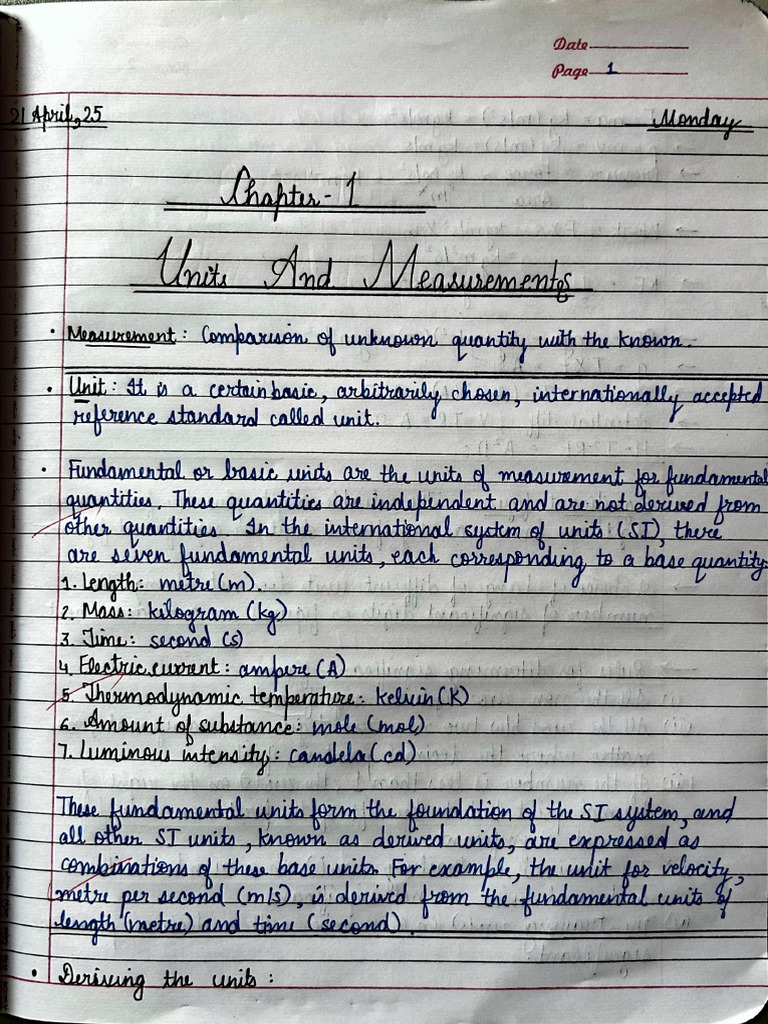 Date
Page 1
21 April, 25 Monday
Chapter-1
Units And Measurements
• Measurement: Comparison of unknown quantity with the known.
• Unit: It is a certain basic, arbitrarily chosen, internationally accepted
reference standard called unit.
• Fundamental or basic units are the units of measurement for fundamental
quantities. These quantities are independent and are not derived from
other quantities. In the international system of units (SI), there
are seven fundamental units, each corresponding to a base quantity.
1. Length: metre (m).
2. Mass: kilogram (kg)
3. Time: second (s)
4. Electric current: ampere (A)
5. Thermodynamic temperature: kelvin (K)
6. Amount of substance: mole (mol)
7. Luminous intensity: candela (cd)
These fundamental units form the foundation of the SI system, and
all other SI units, known as derived units, are expressed as
combinations of these base units. For example, the unit for velocity,
metre per second (m/s), is derived from the fundamental units of
length (metre) and time (second).
• Deriving the units: